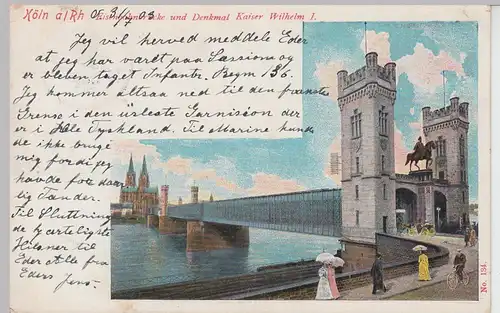 Köln a/Rh d. 3/7 03
Eisenbahnbrücke und Denkmal Kaiser Wilhelm I.
Jeg vil herved meddele Eder
at jeg har været paa Sessions og
er bleven taget Infantr. Regm 136.
Jeg kommer altsaa ned til den franske
Grense i den usleste Garnison der
er i hele Tyskland. Til Marine kunde
de ikke bruge
mig fordi jeg
havde for daar
lig Tænder.
Til Slutning
de kærteligste
Hilsner til
Eder Alle fra
Eders
Jens.
No. 134.